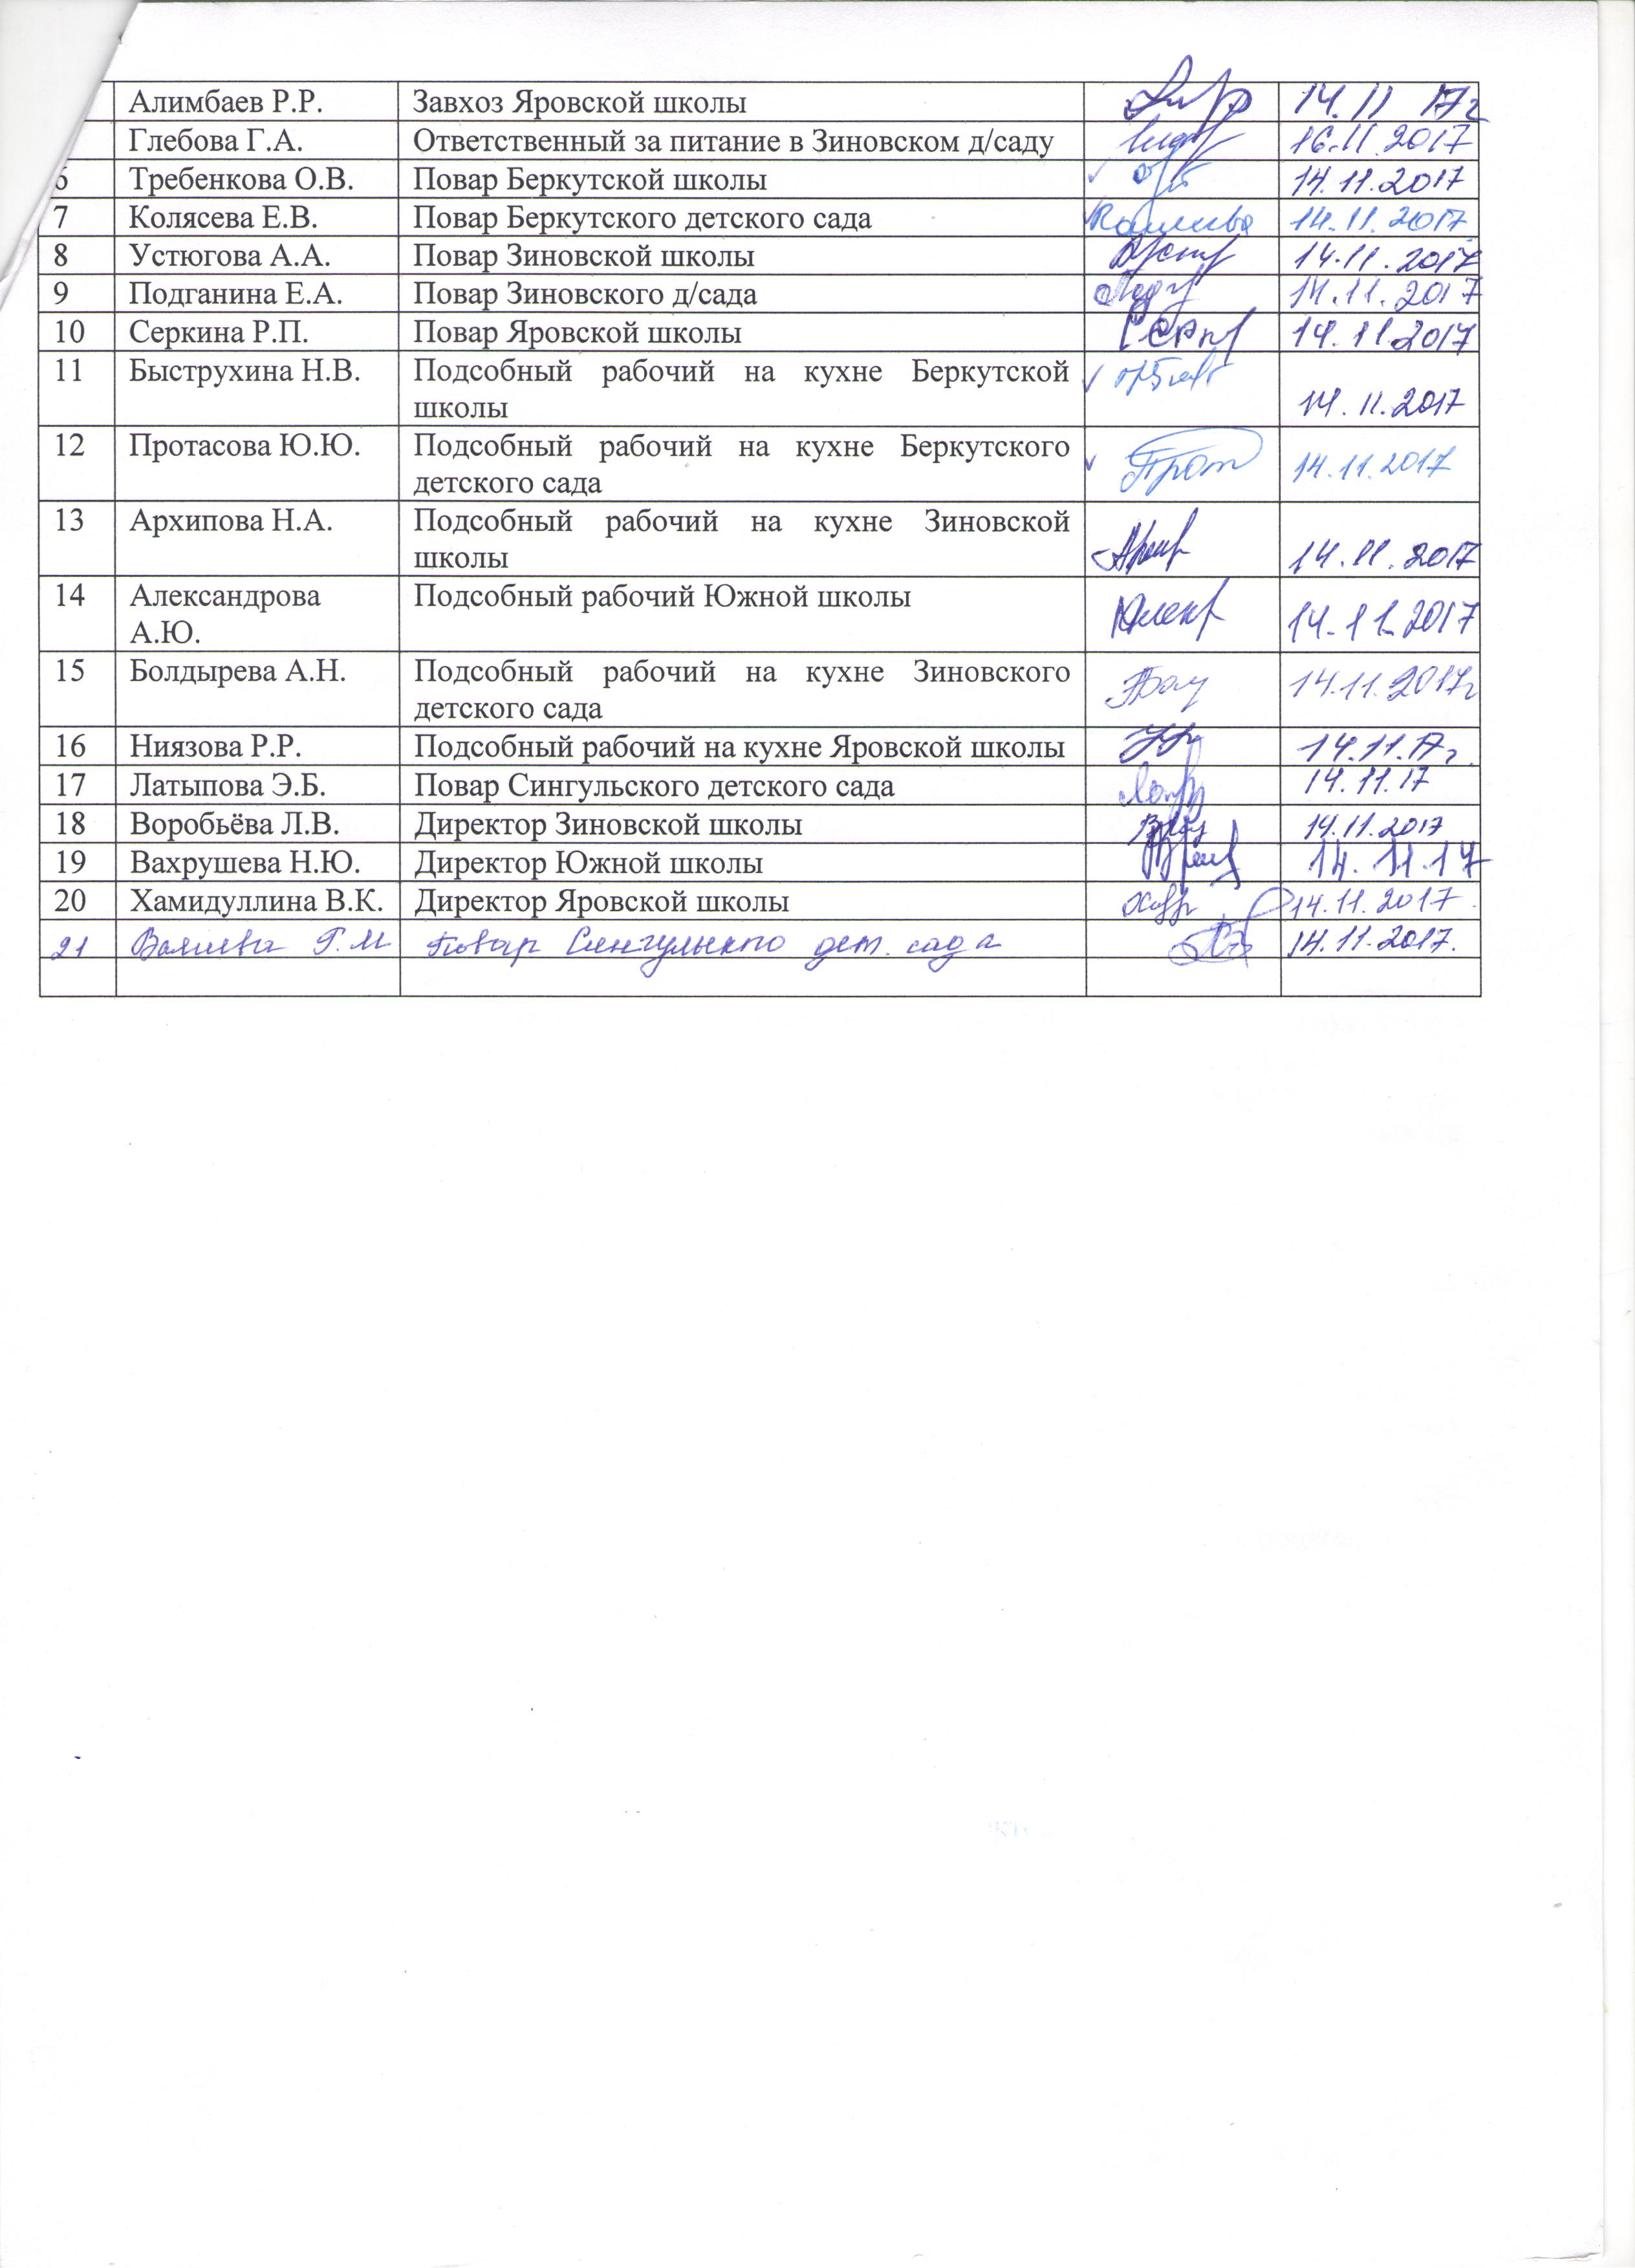 Алимбаев Р.Р. Завхоз Яровской школы 14.11 17г
Глебова Г.А. Ответственный за питание в Зиновском д/саду 16.11.2017
6 Требенкова О.В. Повар Беркутской школы 14.11.2017
7 Колясева Е.В. Повар Беркутского детского сада 14.11.2017
8 Устюгова А.А. Повар Зиновской школы 14.11.2017
9 Подганина Е.А. Повар Зиновского д/сада 14.11.2017
10 Серкина Р.П. Повар Яровской школы 14.11.2017
11 Быструхина Н.В. Подсобный рабочий на кухне Беркутской
школы 14.11.2017
12 Протасова Ю.Ю. Подсобный рабочий на кухне Беркутского
детского сада 14.11.2017
13 Архипова Н.А. Подсобный рабочий на кухне Зиновской
школы 14.11.2017
14 Александрова Подсобный рабочий Южной школы
А.Ю. 14.11.2017
15 Болдырева А.Н. Подсобный рабочий на кухне Зиновского
детского сада 14.11.2017г
16 Ниязова Р.Р. Подсобный рабочий на кухне Яровской школы 14.11.17г.
17 Латыпова Э.Б. Повар Сингульского детского сада 14.11.17
18 Воробьёва Л.В. Директор Зиновской школы 14.11.2017
19 Вахрушева Н.Ю. Директор Южной школы 14.11.17
20 Хамидуллина В.К. Директор Яровской школы 14.11.2017
21 Г.М Повар дет. сада 14.11.2017.